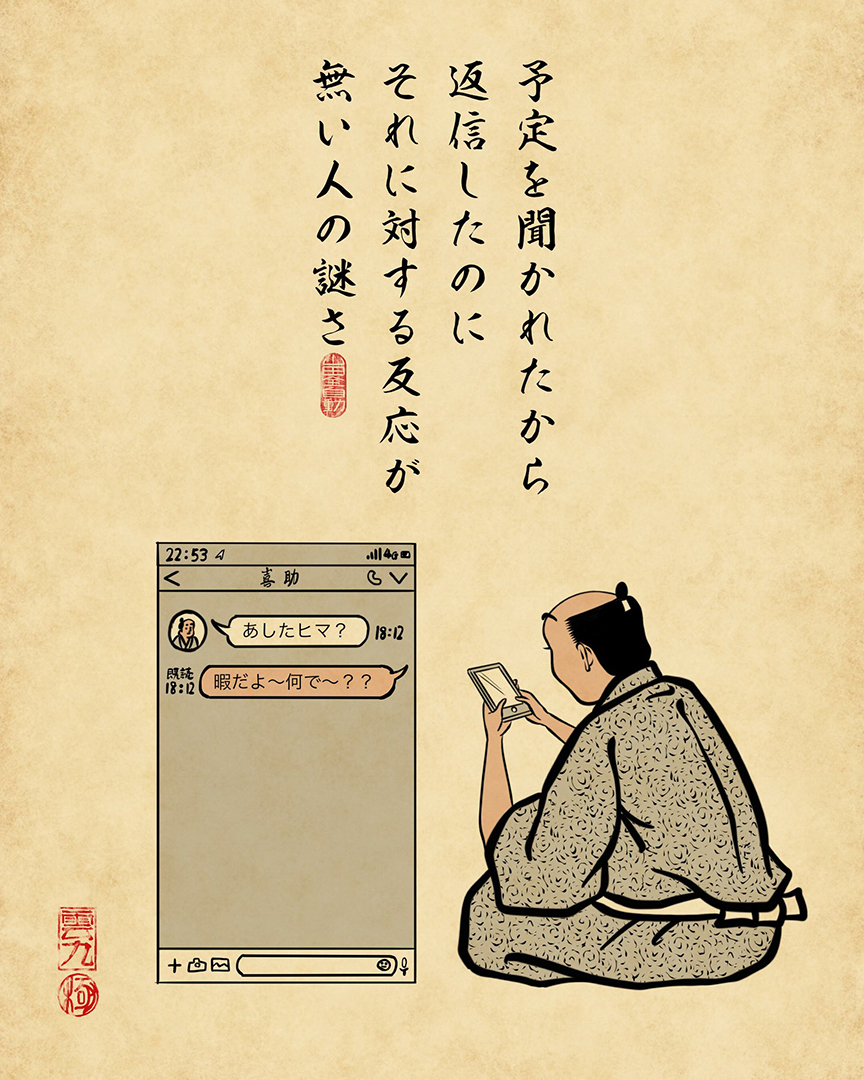 予定を聞かれたから
返信したのに
それに対する反応が
無い人の謎さ
22:53
4G
喜助
あしたヒマ？
18:12
既読
18:12
暇だよ〜何で〜？？